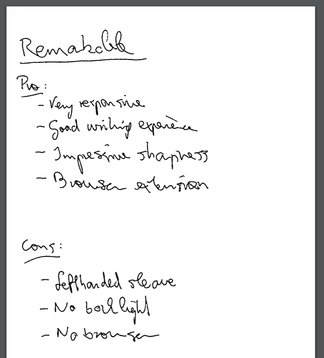 Remarkable
Pro:
- Very responsive
- Good writing experience
- Impressive sharpness
- Browser extension
Cons:
- Lefthanded sleave
- No backlight
- No browser